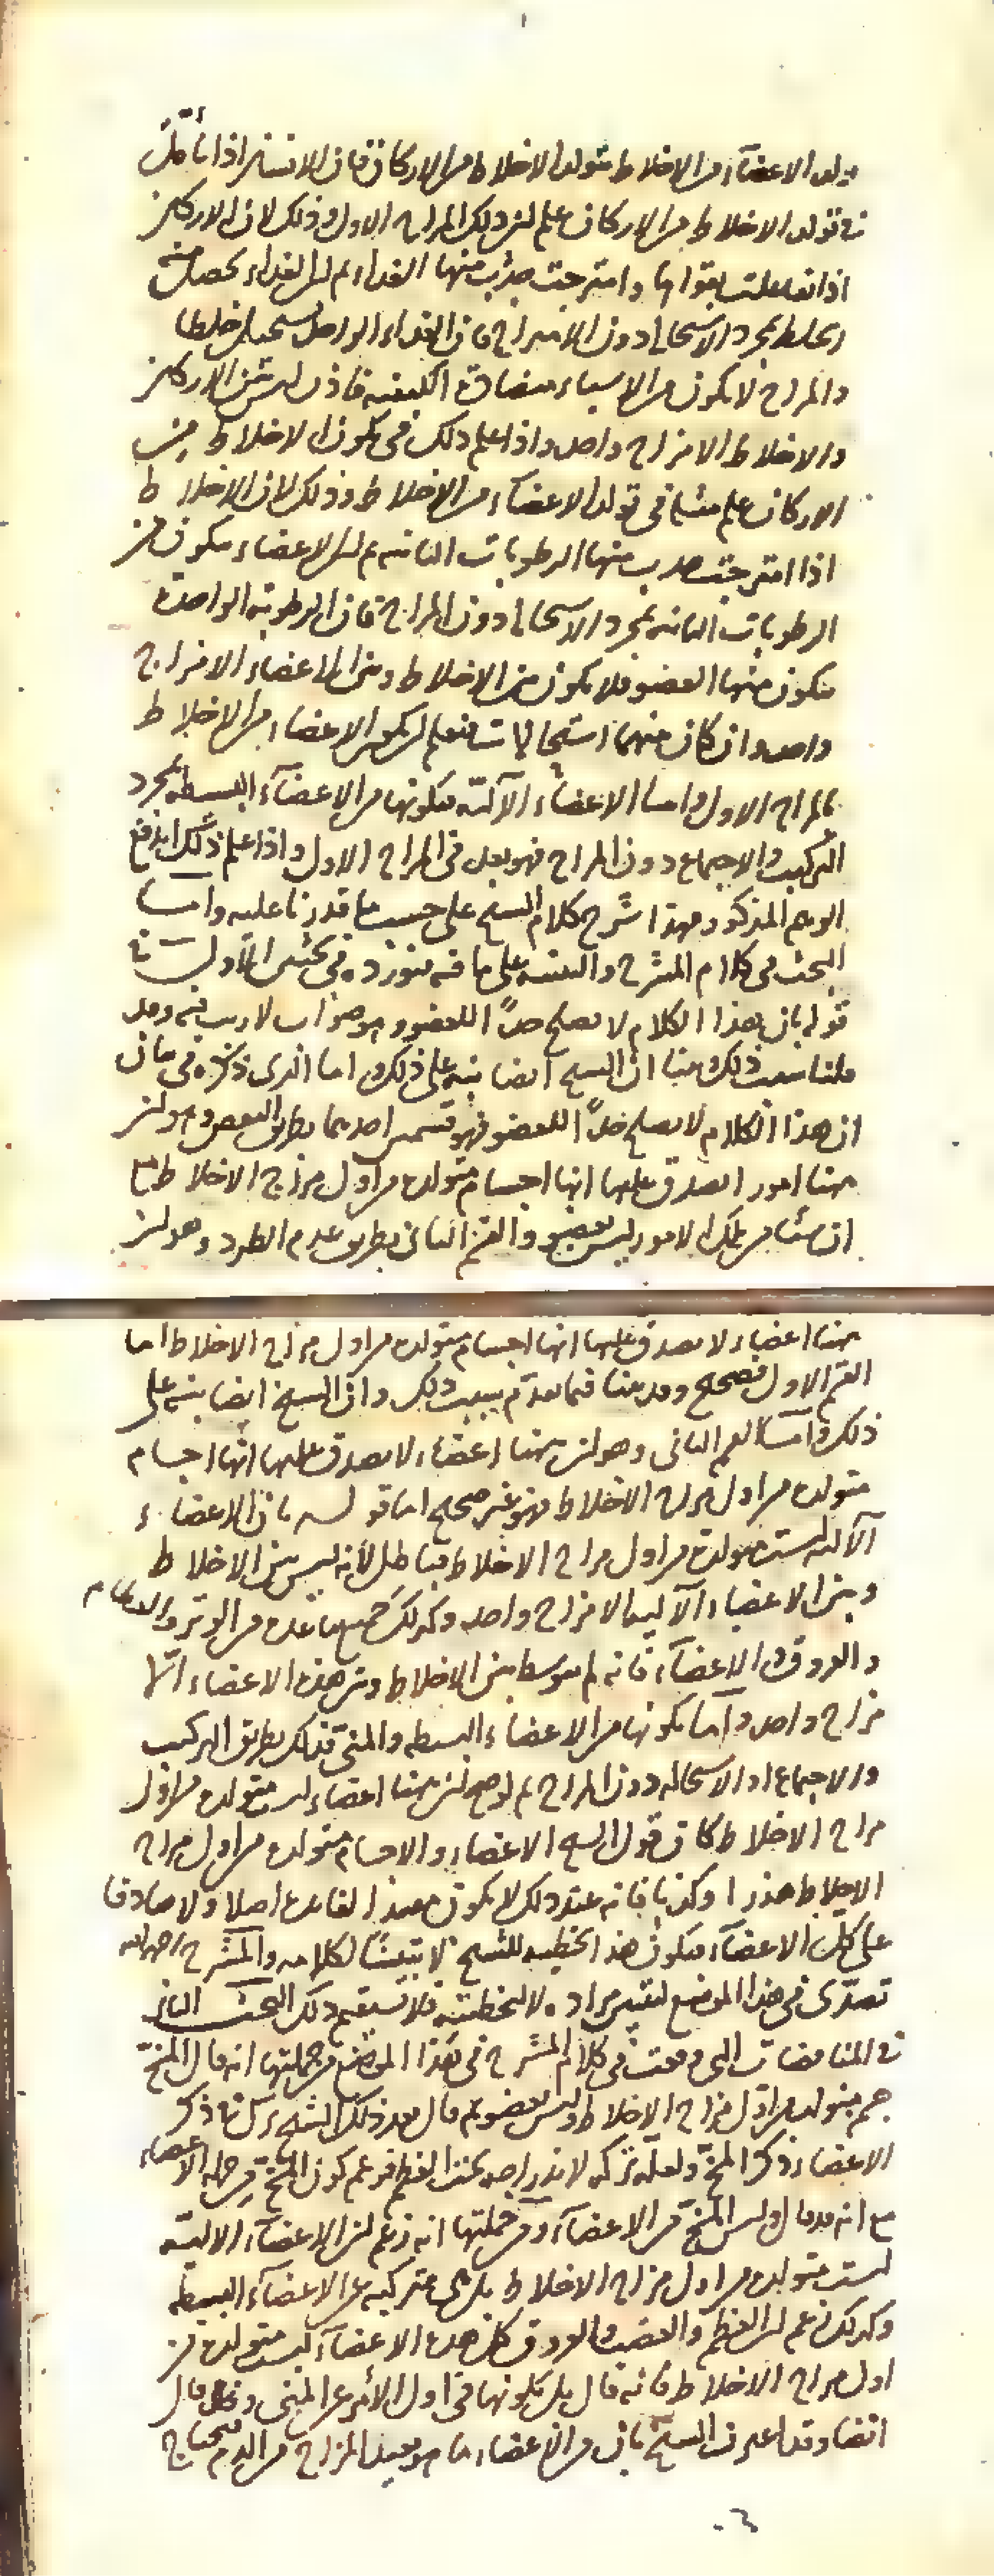 تولد الاعضآء من الاخلاط بتولد الاخلاط من الاركان فان الانسان اذا تأمّل
في تولد الاخلاط من الاركان علم ان ذلك المزاج الاول وذلك لان الاركان
اذا تفاعلت بقواها وامتزجت حدث منها الغذاء ثم ان الغذاء يحصل منه
الخلط بمجرد الاستحالة دون الامتزاج فان الغذاء الواحد يستحيل خلطا
والمزاج لا يكون من الاشياء متضادة الكيفية فاذن ليس بين الاركان
والاخلاط الا مزاج واحد واذا علم ذلك في تكون الاخلاط من
الاركان علم مثله في تولد الاعضآء من الاخلاط وذلك لان الاخلاط
اذا امتزجت حدث منها الرطوبات الثانية ثم ان الاعضاء يتكون من
الرطوبات الثانية بمجرد الاستحالة دون المزاج فان الرطوبة الواحدة
يتكون منها العضو فلا يكون بين الاخلاط وبين الاعضاء الا مزاج
واحد وان كان بينهما استحالات فعلم ان تكون الاعضاء من الاخلاط
بالمزاج الاول واما الاعضآء الآلية فتكونها من الاعضآء البسيطة بمجرد
التركيب والاجتماع دون المزاج فهو بعد في المزاج الاول واذا علم ذلك اندفع
الوهم المذكور فهذا شرح كلام الشيخ على حسب ما قدرنا عليه واما
البحث في كلام المشرح والتنبيه على ما فيه فنورده في بحثين الاول في
قوله بان هذا الكلام لا يصلح حدًا للعضو وهو صواب لا ريب فيه وقد
بينا ان الشيخ ايضا نبه على ذلك اما الذي ذكره في بيان
ان هذا الكلام لا يصلح حدًا للعضو فهو قسمين احدهما بطريق النقض وهو ان
ههنا امور ا يصدق عليها انها اجسام متولدة من اول مزاج الاخلاط مع
ان شئا من تلك الامور ليس بعضو والقسم الثاني بطريق عدم الطرد وهو ان
ههنا اعضاء لا يصدق عليها انها اجسام متولدة من اول مزاج الاخلاط اما
القسم الاول فصحيح وقد بينا فيما تقدم ذلك وان الشيخ ايضا نبه على
ذلك واما القسم الثاني وهو ان ههنا اعضاء لا يصدق عليها انها اجسام
متولدة من اول مزاج الاخلاط فهو غير صحيح اما قوله بان الاعضاء
الآلية ليست متولدة من اول مزاج الاخلاط فباطل لانه ليس بين الاخلاط
وبين الاعضاء الآلية الا مزاج واحد وكذلك جميع ما عده من الوتر والعظام
والعروق والاعضآء فانه لم يتوسط بين الاخلاط وبين هذه الاعضاء الّا
مزاج واحد وامّا تكونها من الاعضاء البسيطة والمني فذلك بطريق التركيب
والاجتماع او الاستحالة دون المزاج ثم لو صح ان ههنا اعضاء ليست متولدة من اول
مزاج الاخلاط كان قول الشيخ الاعضاء والاجسام متولدة من اول مزاج
الاخلاط هذرا وكذبا فانه عند ذلك لا يكون مفيدا لفائدة اصلا ولا صادقا
على كل الاعضآء فيكون هذا تخطئة للشيخ لا تبيينًا لكلامه والمشرح
تصدّى في هذا الموضع لتفسير مراده لا لتخطئته فلا يستقيم ذلك البحث الثاني
في المناقضات التي وقعت في كلام المشرح في هذا الموضع فمن جملتها انه قال المخ
جسم متولد من اوّل مزاج الاخلاط وليس بعضو ثم قال بعد ذلك الشيخ ترك في ذكر
الاعضاء ذكر المخ ولعله تركه لاندراجه تحت العظم فزعم كون المخ من جملة الاعضاء
مع انه قد قال اولا ليس المخ من الاعضآء ومن جملتها انه زعم ان الاعضآء الالية
ليست متولدة من اول مزاج الاخلاط بل هي متركبة عن الاعضآء البسيطة
وكذلك زعم ان العظم والعصب والعروق كل هذه الاعضآء ليست متولدة من
اول مزاج الاخلاط فانه قال بل تكونها في اول الأمر عن المني وقال
ايضا وقد اعترف الشيخ بان من الاعضاء ما هو بعيد المزاج من الدم فيحتاج